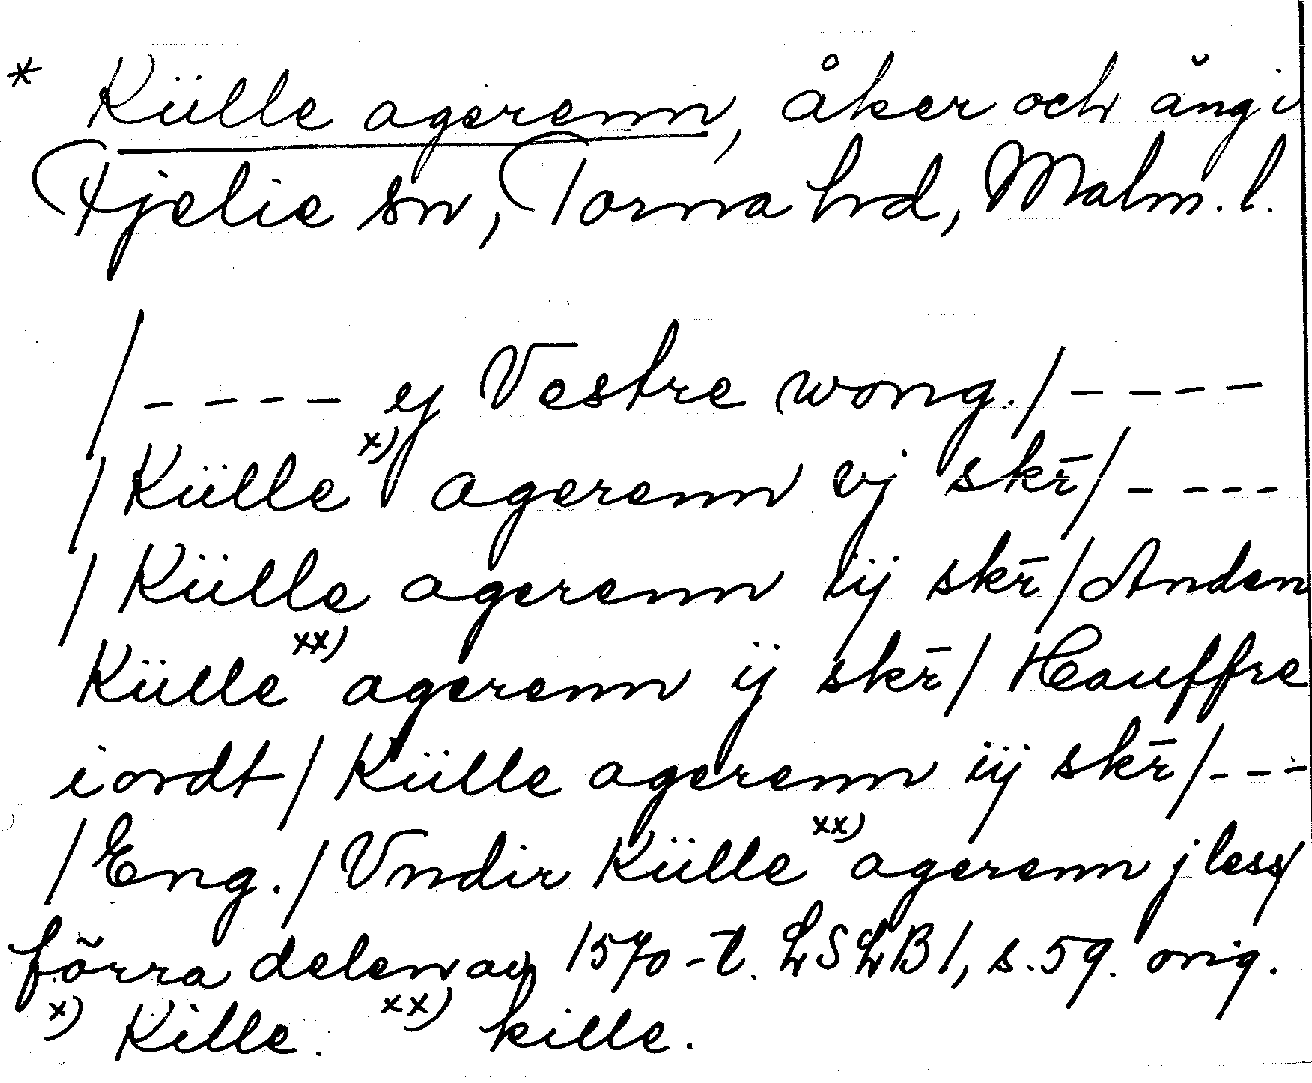 * Külle agerenn, åker och äng i
Fjelie sn, Torna hrd, Malm. l.
/---- ej Vestre wong./----
/Külle x) agerenn vj skr̄/----
/Külle agerenn iij skr̄/Anden
Külle xx) agerenn ij skr̄/ Hauffre
iordt/Külle agerenn iij skr̄/---
/Eng./Vndir Külle xx) agerenn j less/
förra delen av 1570-t. LSLB1, s.59. orig.
x) Kille. xx) kille.